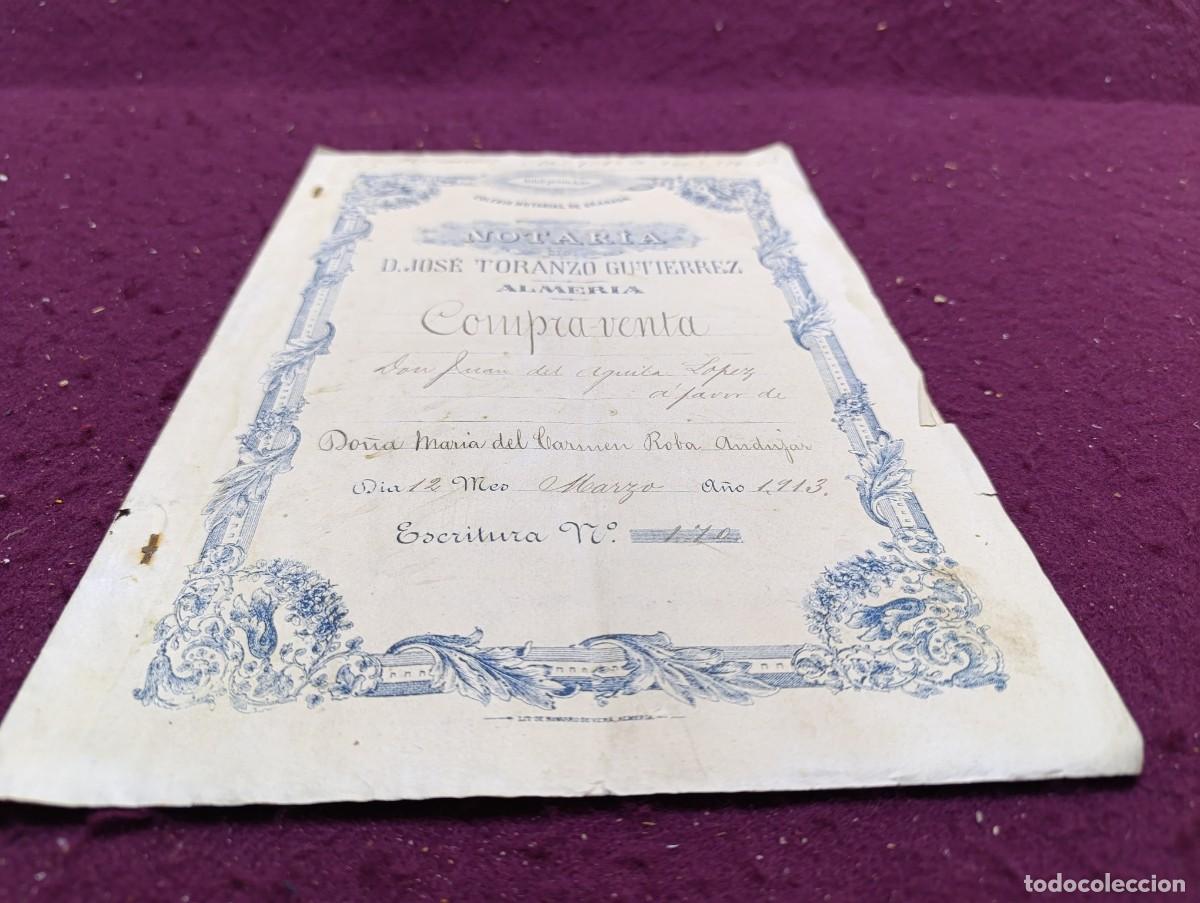 COLEGIO NOTARIAL DE GRANADA
NOTARÍA
D. JOSÉ TORANZO GUTIERREZ
ALMERIA
Compra-venta
Don Juan del Aguila Lopez
á favor de
Doña Maria del Carmen Roba Andujar
Dia 12 Mes Marzo Año 1,913.
Escritura Nº. 170
LIT. DE NAVARRO DE VERA, ALMERÍA
todocoleccion